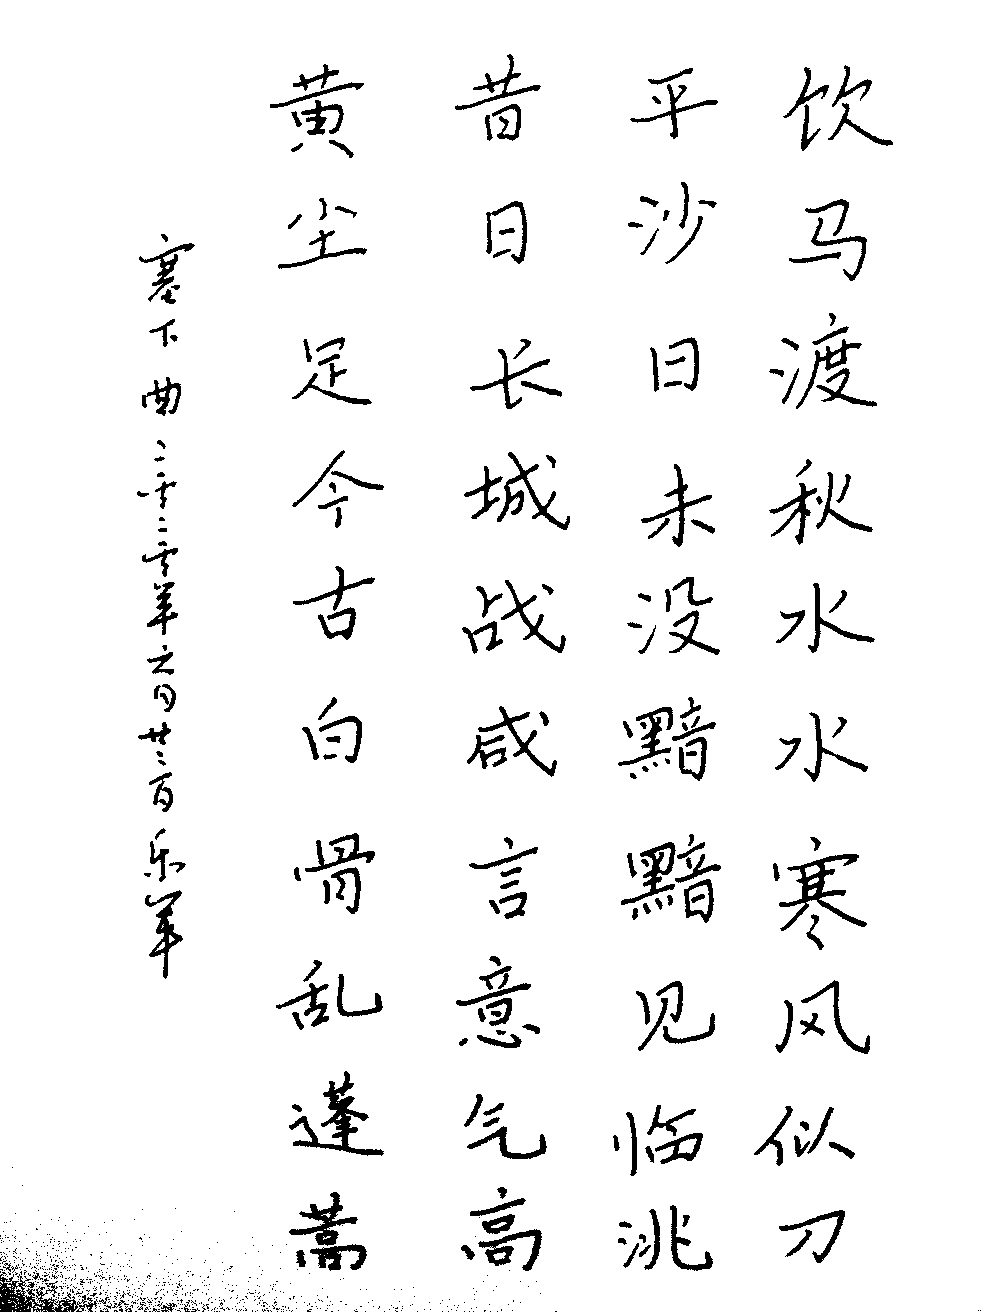 饮马渡秋水水寒风似刀
平沙日未没黯黯见临洮
昔日长城战咸言意气高
黄尘足今古白骨乱蓬蒿
塞下曲二零二零年六月廿二日乐羊